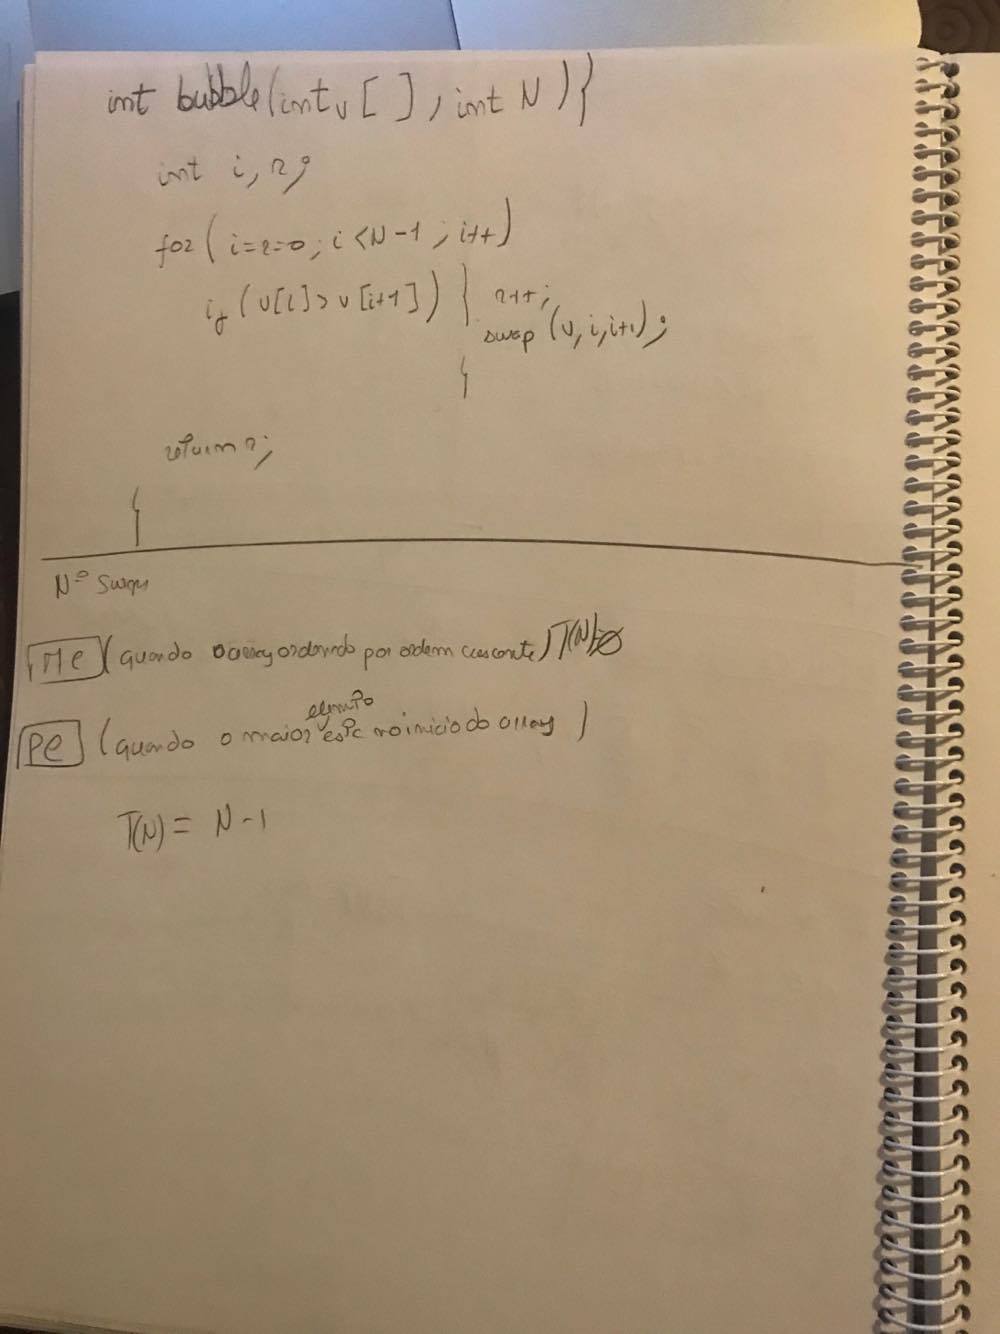 int bubble(int v [ ] , int N ) {
int i, r;
for ( i=r=0; i < N-1 ; i++)
if (v[i] > v[i+1]) { r++;
swap (v, i, i+1);
}
return r;
}
Nº Swaps
Me (quando o array ordenado por ordem crescente) T(N)=0
elemento
Pe (quando o maior está no inicio do array )
T(N) = N - 1